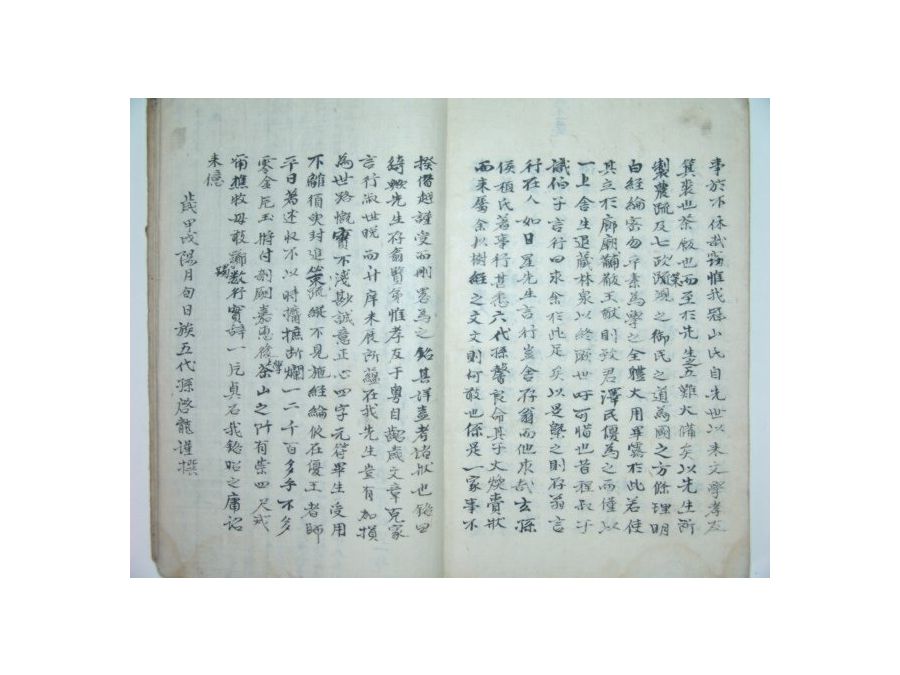 事於不休哉竊惟我冠山氏自先世以来文學孝友
箕裘也茶飯也而至於先生益難大備矣以先生所
製農疏及七政頒規策之御民之道為國之方條理明
白經綸密勿平素為學之全軆大用畢露於此若使
其立於廊廟黼黻王猷則致君澤民優為之而僅以
一上舍生退藏林泉以終頭世吁可惜也昔程叔子
識伯子言行曰求余於此足矣以是槩之則存翁言
行在人如日星先生言行豈舍存翁而他求哉玄孫
侯植氏著事行甚悉六代孫馨良命其子火煥賫狀
而来屬余以樹經之文文則何敢也係是一家事不
揆僭越謹受而刪定為之銘其詳益考诸狀也銘曰
猗歟先生存翁賢弟惟孝友于粤自齠歲文章克家
言行淑世晚而升庠未展所蘊在我先生豈有加損
為世路慨實不淺尠誠意正心四字元符畢生受用
不離須臾封進策疏縱不見施經綸攸在優王者師
平日著述収不以時攟摭斷爛一二千百多乎不多
零金片玉將付剞劂嘉惠後學荼山之阡有崇四尺戒
爾樵牧毋敢躑數行實辭一片貞石我銘昭之庸詔
来億
歲甲戌陽月旬日族五代孫啓龍謹撰